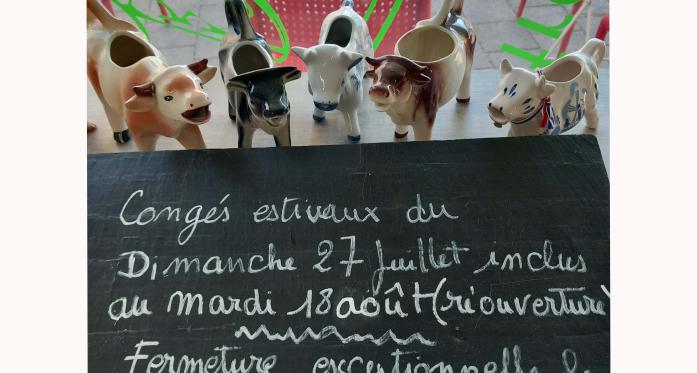 Congés estivaux du
Dimanche 27 juillet inclus
au mardi 18 août (réouverture)
Fermeture exceptionnelle le